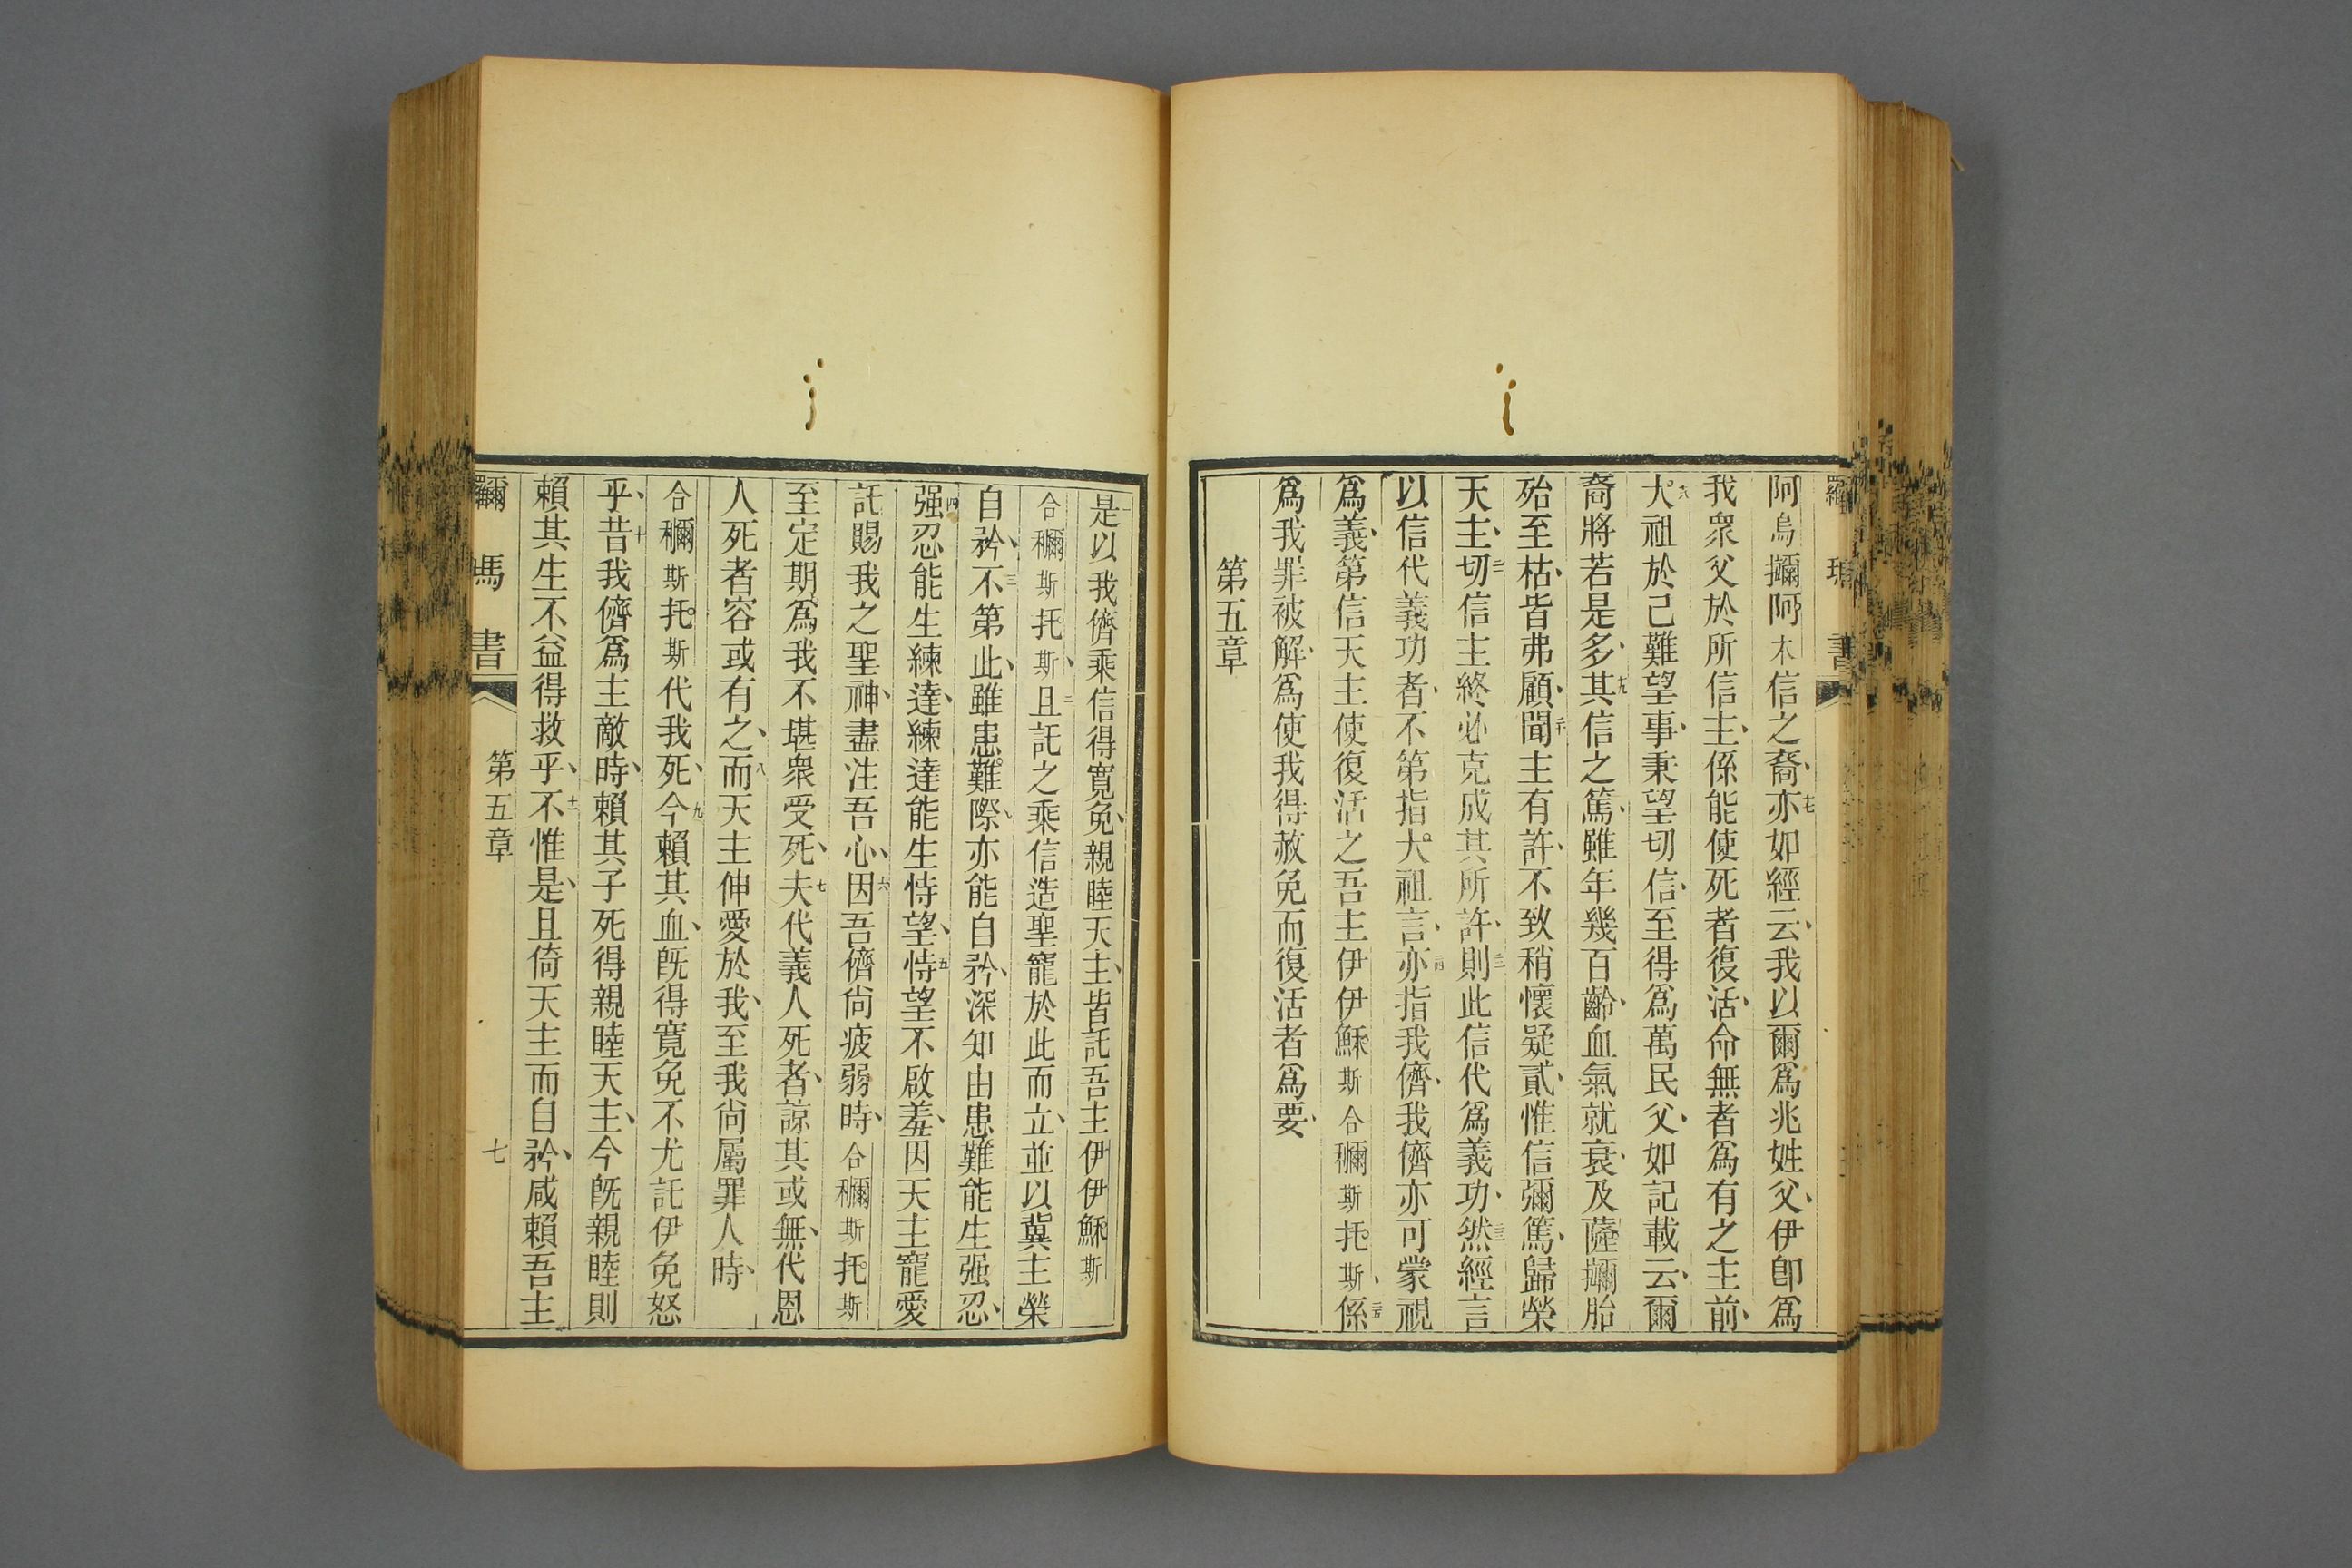 阿烏攧阿木信之裔亦七十如經云我以爾爲兆姓父伊卽爲
我眾父於所信主係能使死者復活命無者爲有之主前
大祖於己難望事秉望切信至得爲萬民父如記載云爾
裔將若是多其十九信之篤雖年幾百齡血氣就衰及薩攧胎
殆至枯皆弗顧聞主有許不致稍懷疑貳惟信彌篤歸榮
天主切信主終必克成其所許則此信代爲義功然經言
以信代義功者不第指大祖言亦指我儕我儕亦可蒙視
爲義第信天主使復活之吾主伊伊穌斯合穪斯托斯係
爲我罪被解爲使我得赦免而復活者爲要
第五章
是以我儕乘信得寬免親睦天主皆託吾主伊伊穌斯
合穪斯托斯且二託之乘信造聖寵於此而立並以冀主榮
自矜不三第此雖患難際亦能自矜深知由患難能生强忍
强四忍能生練達練達能生恃望恃五望不啟羞因天主寵愛
託賜我之聖神盡注吾心因六吾儕尚疲弱時合穪斯托斯
至定期爲我不堪眾受死夫七代義人死者諒其或無代恩
人死者容或有之而八天主伸愛於我至我尚屬罪人時
合穪斯托斯代我死今九賴其血旣得寬免不尤託伊免怒
乎昔十我儕爲主敵時賴其子死得親睦天主今旣親睦則
賴其生不益得救乎不十一惟是且倚天主而自矜咸賴吾主
書
第五章
七